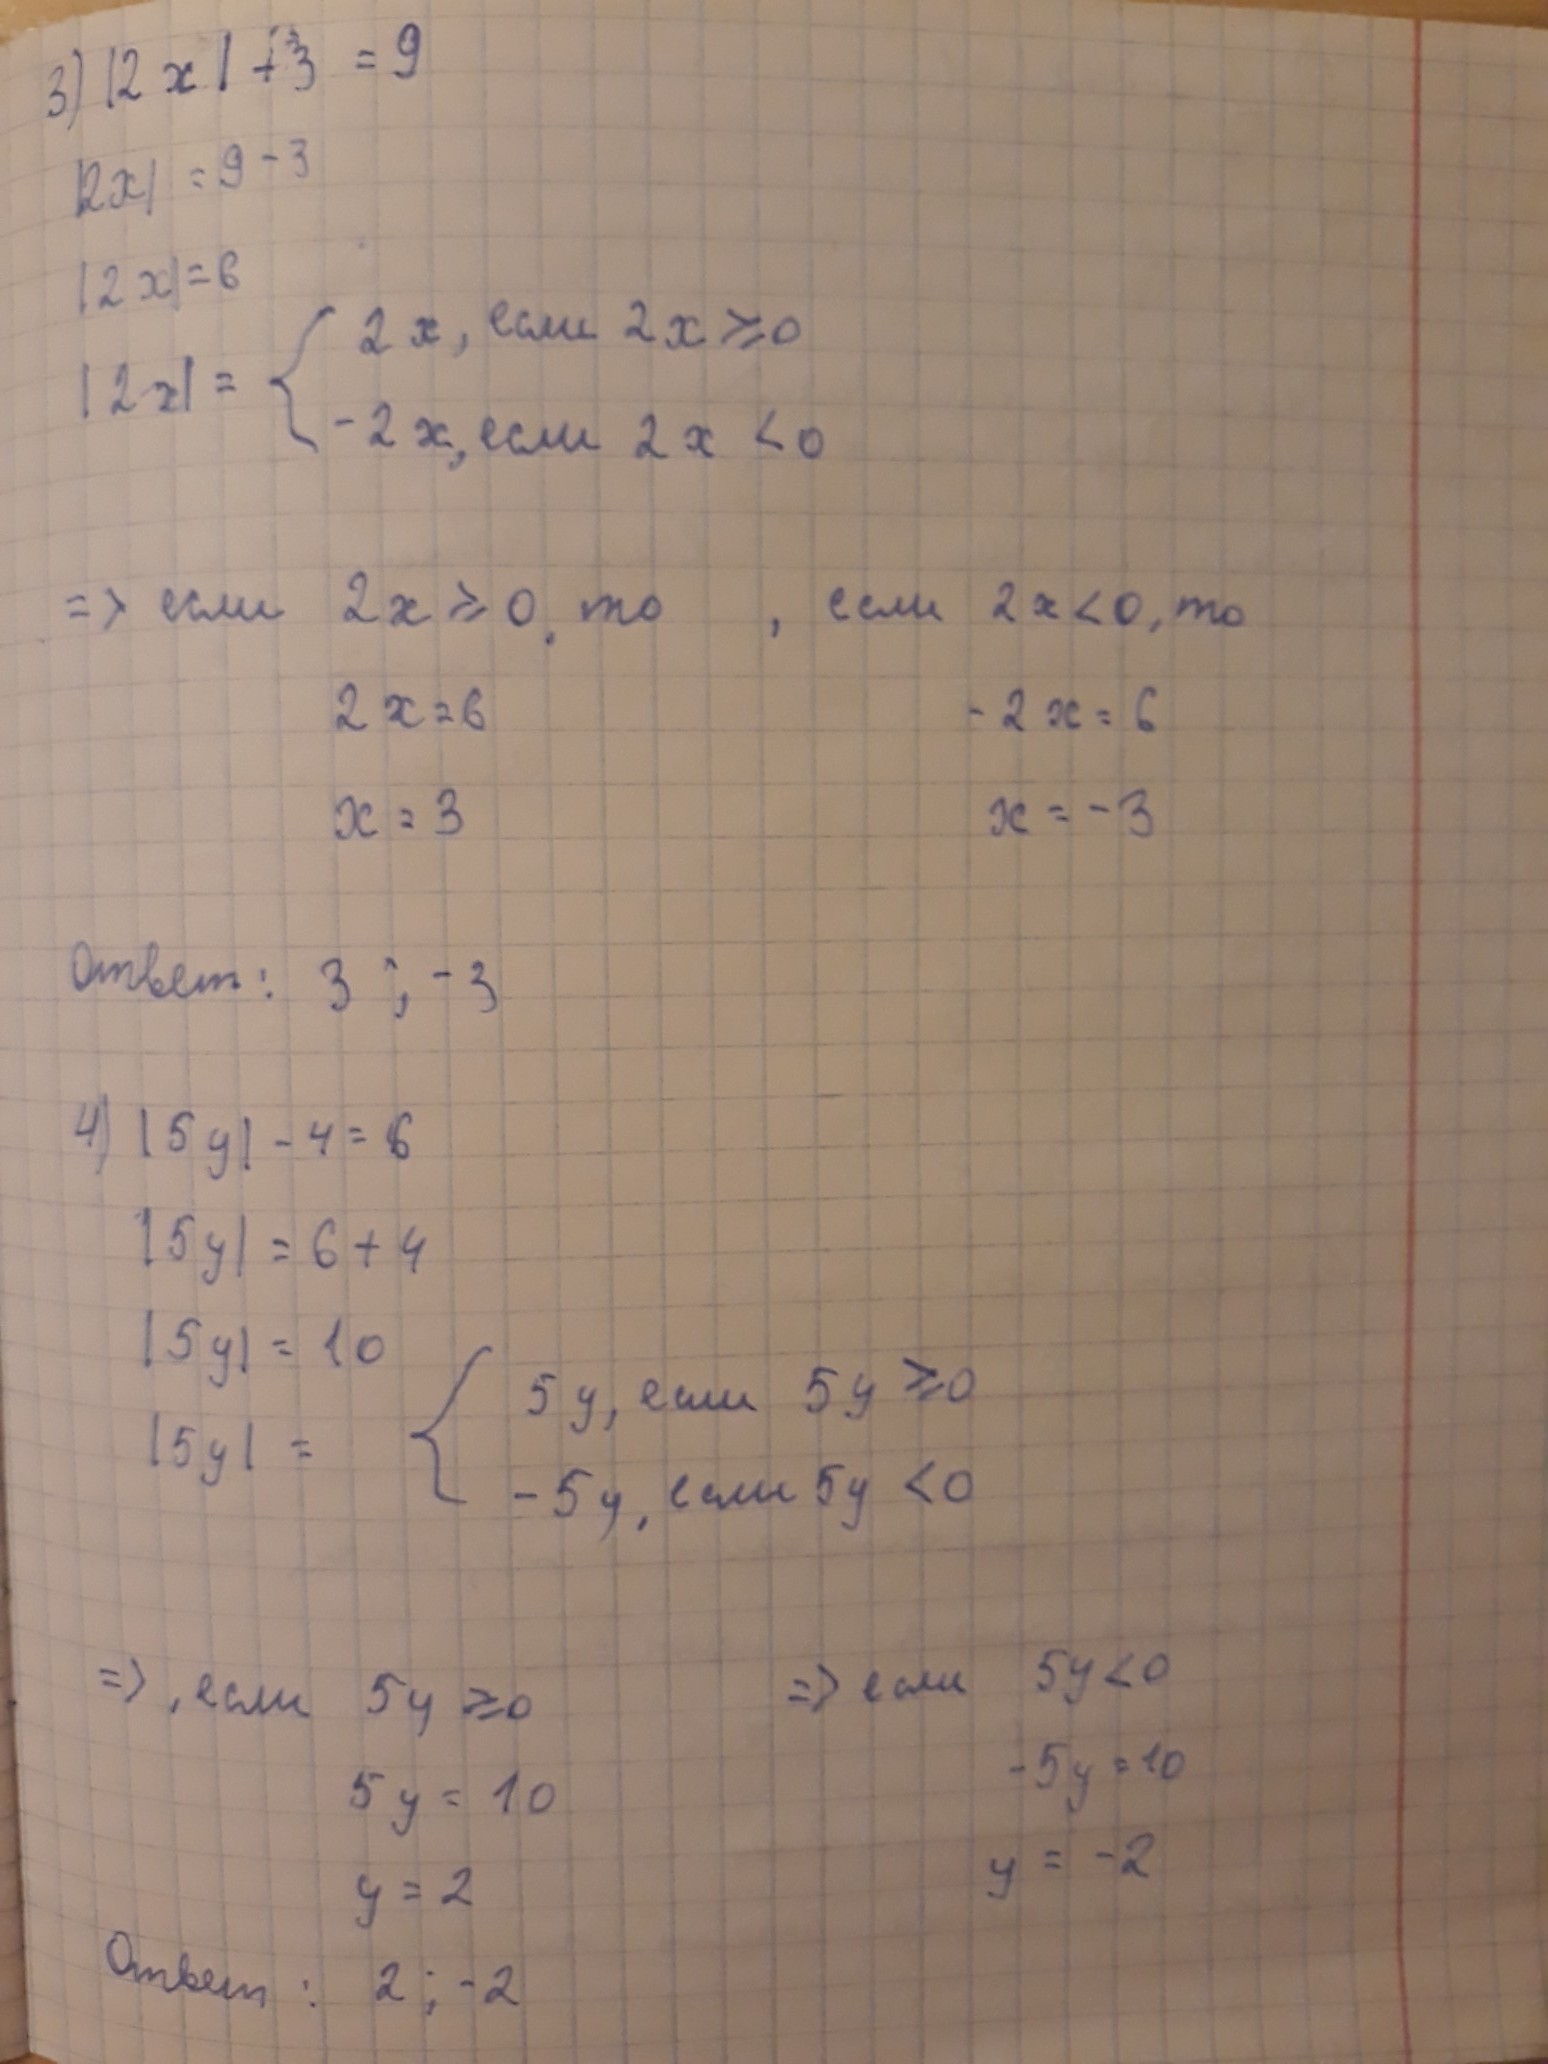 3) |2x| + 3 = 9
|2x| = 9 - 3
|2x| = 6
|2x| = { 2x, если 2x ⩾ 0
-2x, если 2x < 0
=> если 2x ⩾ 0, то , если 2x < 0, то
2x = 6 -2x = 6
x = 3 x = -3
Ответ: 3 ; -3
4) |5y| - 4 = 6
|5y| = 6 + 4
|5y| = 10
|5y| = { 5y, если 5y ⩾ 0
-5y, если 5y < 0
=>, если 5y ⩾ 0 => если 5y < 0
5y = 10 -5y = 10
y = 2 y = -2
Ответ: 2 ; -2